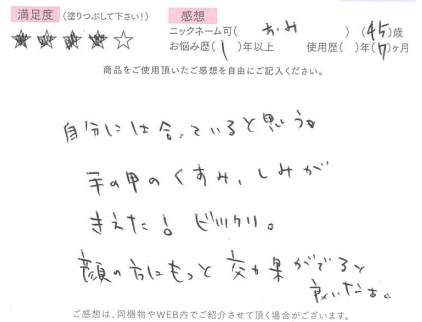 満足度 (塗りつぶして下さい!)
★★★★☆
感想
ニックネーム可( おみ )(45)歳
お悩み歴( 1 )年以上 使用歴( )年(7)ヶ月
商品をご使用頂いたご感想を自由にご記入ください。
自分には合っていると思う。
手の甲のくすみ、しみが
きえた! ビックリ。
顔の方にもっと効果がでると
良いなぁ。
ご感想は、同梱物やWEB内でご紹介させて頂く場合がございます。